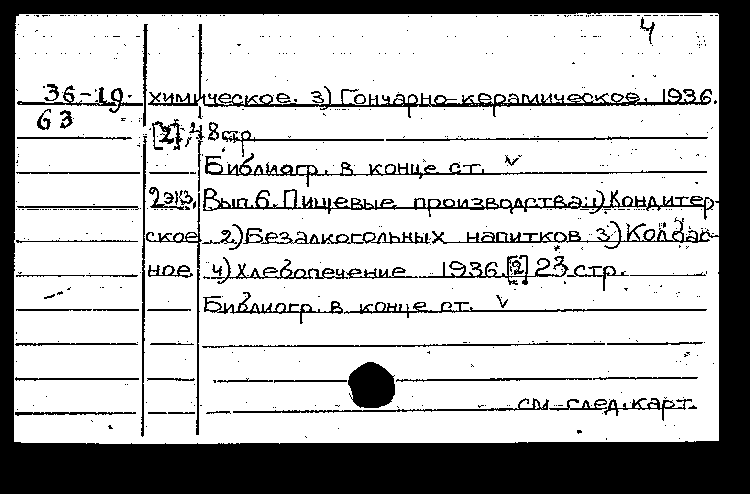 4
36-19. химическое. 3) Гончарно-керамическое. 1936.
63
[2], 48 стр.
Библиогр. в конце ст. v
2 экз. Вып. 6. Пищевые производства: 1) Кондитер-
ское 2) Безалкогольных напитков 3) Колбас-
ное 4) Хлебопечение 1936. [2] 23 стр.
Библиогр. в конце ст. v
см. след. карт.